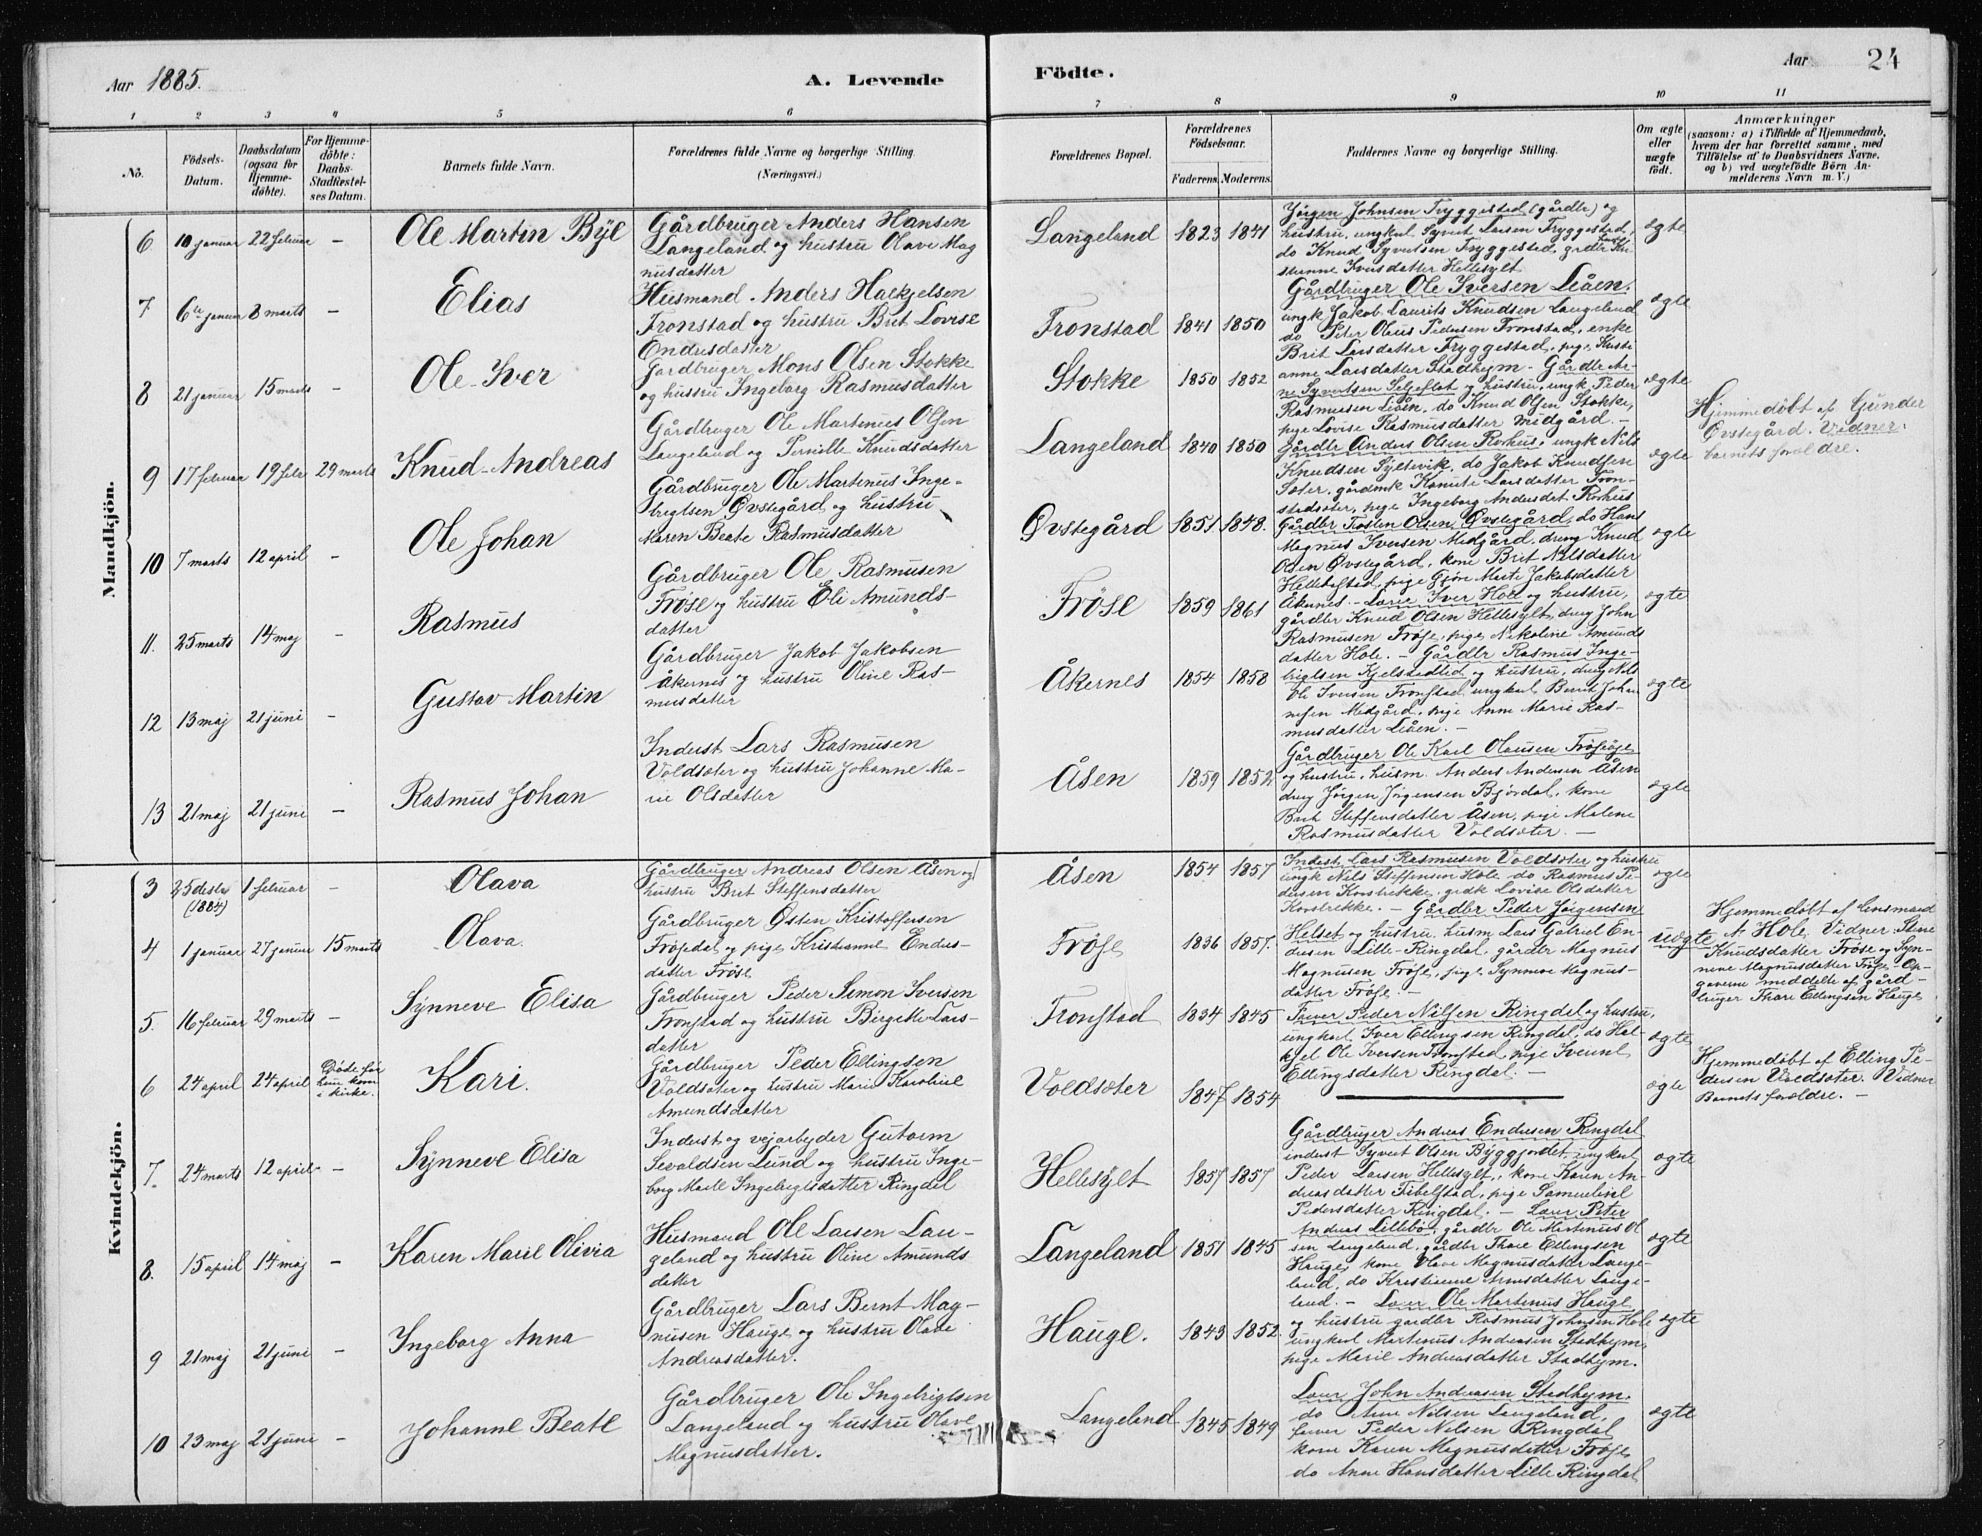 Aar 1885.
A. Levende
Födte.
Aar 24
1 2 3 4 5 6 7 8 9 10 11
No.
Födsels-Datum.
Daabsdatum (ogsaa for Hjemme-döbte).
For Hjemme-döbte: Daabs-Stadfæstel-ses Datum.
Barnets fulde Navn.
Forældrenes fulde Navne og borgerlige Stilling. (Næringsvei.)
Forældrenes Bopæl.
Forældrenes Födselsaar.
Faderens. Moderens.
Faddernes Navne og borgerlige Stilling.
Om ægte eller uægte födt.
Anmærkninger
(saasom: a) i Tilfælde af Hjemmedaab, hvem der har forrettet samme, med Tilföielse af to Daabsvidners Navne, og b) ved uægtefödte Börn An-melderens Navn m. V.)
Mandkjön.
6 10 januar 22 februar – Ole Martin Byl
Gårdbruger Anders Hansen
Langeland og hustru Olave Mag
nusdatter
Langeland 1823 1841
Jörgen Johnsen Tryggestad (gårdbr) og
hustru, ungkarl Syvert Larsen Tryggestad,
do Knud Syvertsen Tryggestad,
Iversdatter Hellesylt
ægte
7 6te januar 8 marts – Elias
Husmand Anders Halkjelsen
Tronstad og hustru Brit Lovise
Endresdatter
Tronstad 1841 1850
Gårdbruger Ole Iversen Liåen.
ungk Jakob Laurits Knudsen Langeland
do Peter Olaus Pedersen Tronstad, enke
Brit Larsdatter Tryggestad, pige Kristi
anne Larsdatter Stadhejm –
ægte
8 21 januar 15 marts – Ole Iver
Gårdbruger Mons Olsen Stokke
og hustru Ingeborg Rasmusdatter
Stokke 1850 1852
Gårdbr Ar-
ne Syvertsen Seljeflot og hustru, ungk Peder
Rasmussen Liåen, do Knud Olsen Stokke,
pige Lovise Rasmusdatter Midgård. –
ægte
9 17 februar 19 febr 29 marts Knud Andreas
Gårdbruger Ole Martinus Olsen
Langeland og Pernille Knudsdatter
Langeland 1840 1850
Gårdbr Anders Olsen Rørhus, ungk Nils
Knudsen Syltevik, do Jakob Knudsen
Sæter, Larsdatter Tron-
stadsæter, pige Ingeborg Andersdat Rørhus
ægte
Hjemmedöbt af Gunder
Øvstegård. Vidner:
barnets forældre.
10 7 marts 12 april – Ole Johan
Gårdbruger Ole Martinus Inge-
brigtsen Øvstegård og hustru
Maren Beate Rasmusdatter
Øvstegård 1851 1848.
Gårdbr Trosten Olsen Øvstegård, do Hans
Magnus Iversen Midgård, dreng Knud
Olsen Øvstegård, kone Brit Nilsdatter
pige Gjøre Marte Jakobsdatter
Åkernes. –
ægte
11. 25 marts 14 maj – Rasmus
Gårdbruger Ole Rasmusen
Frøse og hustru Eli Amunds-
datter
Frøse 1859 1861
Iver Hole og hustru,
gårdbr Knud Olsen Hellesylt, dreng John
Rasmusen Frøse, pige Nikoline Amunds
datter Hole. –
ægte
12 13 maj 21 juni – Gustav Martin
Gårdbruger Jakob Jakobsen
Åkernes og hustru Oline Ras-
musdatter
Åkernes 1854 1858
Gårdbr Rasmus Inge-
brigtsen Kjelstadlid og hustru, dreng Nils
Ole Iversen Tronstad, ungkarl Bernt Johan
nesen Midgård, pige Anne Marie Ras-
musdatter Liåen. –
ægte
13 21 maj 21 juni – Rasmus Johan
Inderst Lars Rasmusen
Voldsæter og hustru Johanne Ma-
rie Olsdatter
Åsen 1859 1852
Gårdbruger Ole Karl Olausen
og hustru, husm. Anders Andersen Åsen
dreng Jörgen Jörgensen Bjørdal, kone
Brit Steffensdatter Åsen, pige Malene
Rasmusdatter Voldsæter. –
ægte
Kvindekjön.
3 25 desbr (1884) 1 februar – Olava
Gårdbruger Andreas Olsen Åsen og
hustru Brit Steffensdatter
Åsen 1854 1857
Inderst Lars Rasmusen Voldsæter og hustru
ungk Nils Steffensen Hole do Rasmus Pe-
dersen Korsbrekke, Lovise Olsdatter
Korsbrekke. –
ægte
4 1 januar 27 januar 15 marts Olava.
Gårdbruger Østen Kristoffersen
Frøsedal og pige Kristianne Endres-
datter Frøse
Frøse 1836 1857.
Gårdbr Peder Jørgensen
Helset og hustru, husm Lars Gabriel En-
dresen Lille-Ringdal, gårdbr Magnus
Magnusen Frøse, pige Synneve Magnus-
datter Frøse. –
uægte
Hjemmedöbt af lensmand
A. Hole. Vidner: Stine
Knudsdatter Frøse og Syn-
neve Magnusdatter Frøse – Op-
gaverne meddelte af gård-
bruger Thore Ellingsen Hauge
5. 16 februar 29 marts – Synneve Elisa
Gårdbruger Peder Simon Iversen
Tronstad og hustru Birgitte Lars-
datter
Tronstad 1834 1845
Peder Nilsen Ringdal og hustru,
ungkarl Iver Ellingsen Ringdal, do Hal-
kjel Ole Iversen Tronstad, pige
Ellingsdatter Ringdal. –
ægte
6 24 april 24 april Døde før hun kom i kirke. Kari.
Gårdbruger Peder Ellingsen
Voldsæter og hustru Marie Karoline
Amundsdatter
Voldsæter 1847 1854
ægte
Hjemmedöbt af Elling Pe-
dersen Voldsæter. Vidner
Barnets forældre. –
7. 24 marts 12 april – Synneve Elisa
Inderst og vejarbejder Gutorm
Sevaldsen Lund og hustru Inge-
borg Marte Ingebrigtsdatter Ringdal
Hellesylt 1857 1857
Gårdbruger Andreas Endresen Ringdal
inderst Syvert Olsen Byggjordet, ungkarl
Peder Larsen Hellesylt, kone Karen An-
dreasdatter Fibelstad, pige
Pedersdatter Ringdal. –
ægte
8. 15 april 14 maj – Karen Marie Olivia
Husmand Ole Larsen Lan-
geland og hustru Oline Amunds
datter
Langeland 1851 1845
Peter
Andreas Lillebø, gårdbr Ole Martinus Ol
sen Langeland, gårdbr Thore Ellingsen
Hauge, kone Olave Magnusdatter Lange-
land, do Kristianne Arnesdatter Lange-
land. –
ægte
9 21 maj 21 juni – Ingeborg Anna
Gårdbruger Lars Bernt Mag-
nusen Hauge og hustru Olave
Andreasdatter.
Hauge. 1843 1852.
Ole Martinus Hauge
og hustru gårdbr Rasmus Johnsen Hole
ungkarl Martinus Andersen Stadhejm,
pige Marie Andreasdatter Stadhejm.
ægte
10 23 maj 21 juni – Johanne Beate
Gårdbruger Ole Ingebrigtsen
Langeland og hustru Olave
Magnusdatter.
Langeland 1845 1849
John Andersen Stadhejm.
do Arne Nilsen Langeland,
Peder Nilsen Ringdal
kone Karen Magnusdatter Frøse
do Anne Hansdatter Lille Ringdal
ægte